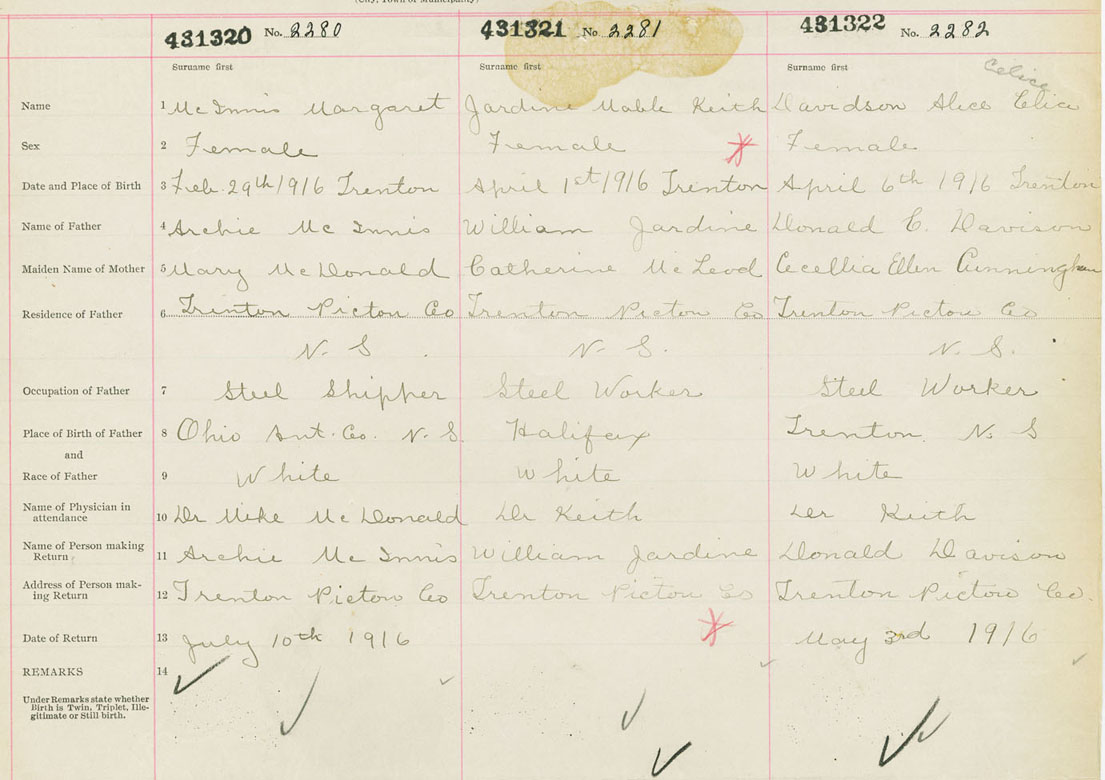 (City, Town or Municipality)
431320 No. 2280 431321 No. 2281 431322 No. 2282
Surname first Surname first Surname first
Celice
Name 1 McInnis Margaret Jardine Mable Keith Davidson Alice Celia
Sex 2 Female Female Female
Date and Place of Birth 3 Feb. 29th 1916 Trenton April 1st 1916 Trenton April 6th 1916 Trenton
Name of Father 4 Archie McInnis William Jardine Donald C. Davison
Maiden Name of Mother 5 Mary McDonald Catherine McLeod Cecellia Ellen Cunningham
Residence of Father 6 Trenton Pictou Co Trenton Pictou Co Trenton Pictou Co
N. S. N. S. N. S.
Occupation of Father 7 Steel Shipper Steel Worker Steel Worker
Place of Birth of Father 8 Ohio Ant. Co. N. S. Halifax Trenton. N. S
and
Race of Father 9 White White White
Name of Physician in
attendance 10 Dr Mike McDonald Dr Keith Dr Keith
Name of Person making
Return 11 Archie McInnis William Jardine Donald Davison
Address of Person mak-
ing Return 12 Trenton Pictou Co Trenton Pictou Co Trenton Pictou Co.
Date of Return 13 July 10th 1916 May 3rd 1916
REMARKS 14
Under Remarks state whether
Birth is Twin, Triplet, Ille-
gitimate or Still birth.